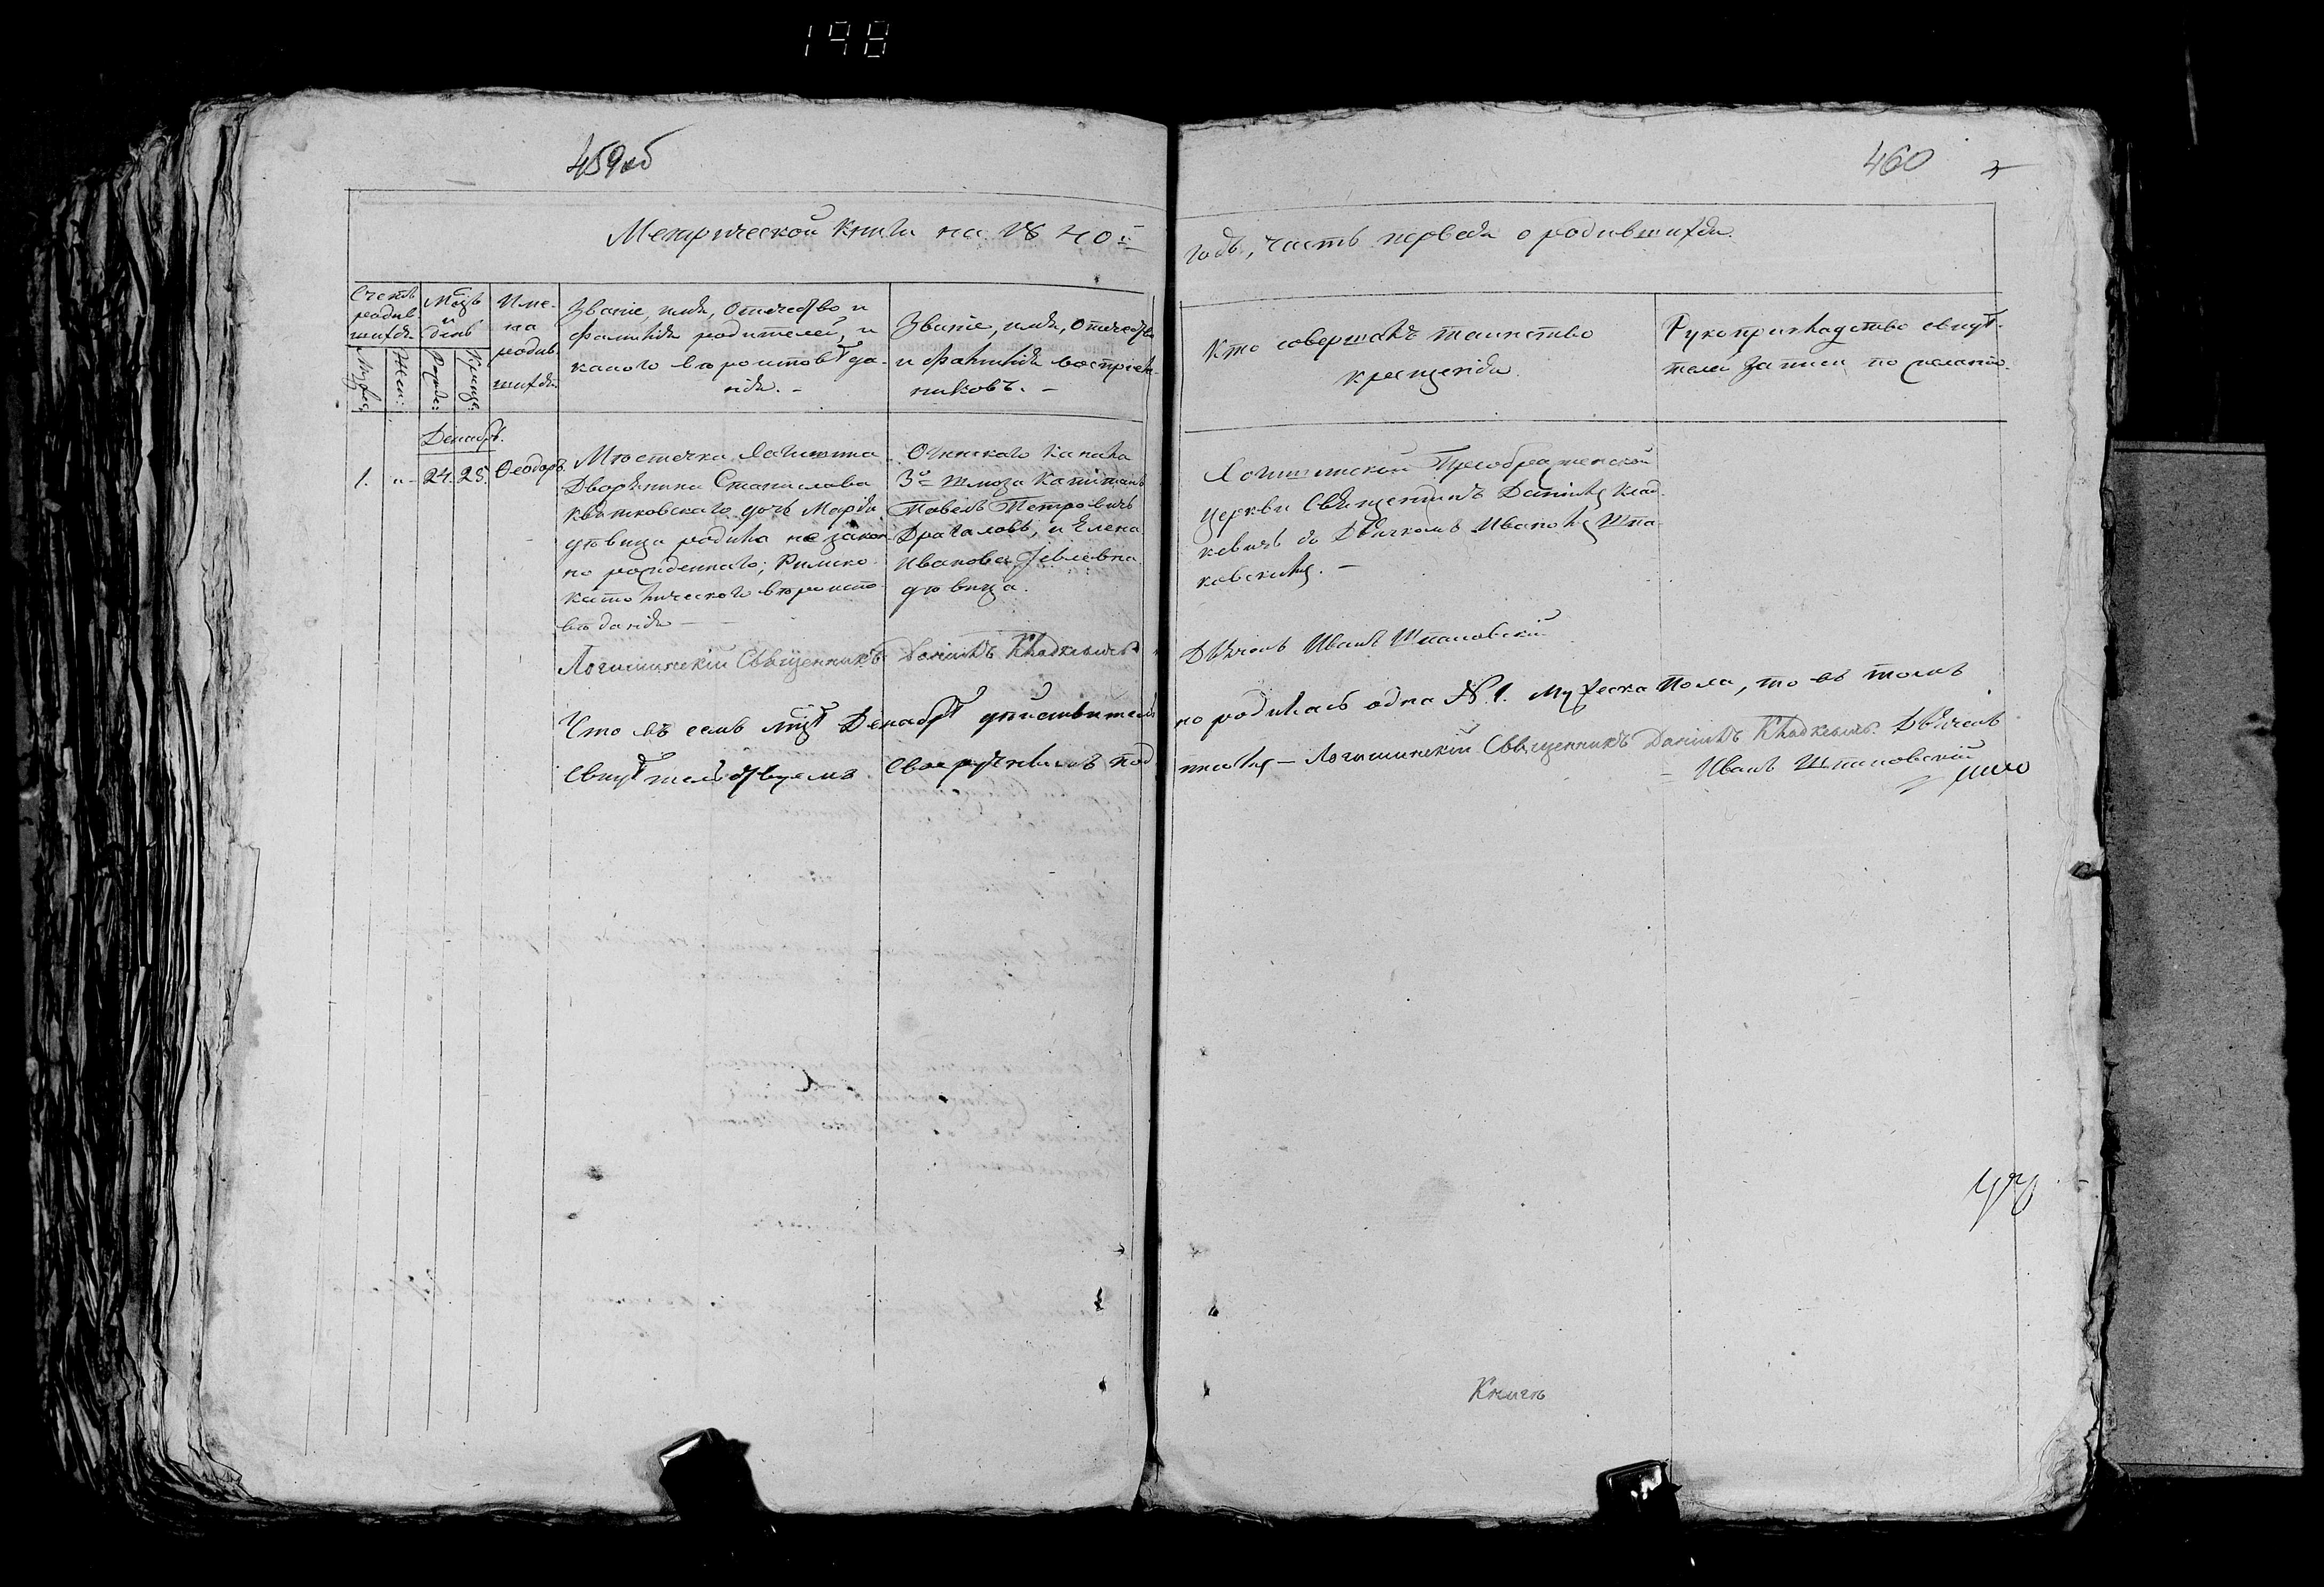 198
459об
460
Метрической книги на 1840й
годъ, часть первая о родившихся.
Счетъ родив шихся
Муже:
Жен:
Мсцъ и день
Рожд:
Крещ:
Име-
на
родив
шихся
Званіе, имя, Отчество и
фамилія родителей, и
какого вѣроисповѣда-
нія. -
Званіе, имя, Отчество
и фамилія воспріем-
никовъ. -
Кто совершалъ таинство
крещенія.
Рукоприкладство свидѣ-
телей записи по желанію.
Декабрь.
1. „ 24. 25. Ѳеодоръ
Мѣстечка Логишина
Дворянина Станислава
Квятковскаго дочь Марія
дѣвица родила незакон
но рожденнаго; Римско-
католическаго вѣроиспо-
вѣданія —
Огинскаго канала
3го шлюза капитанъ
Павелъ Петровичъ
Драгаловъ, и Елена
Иванова
дѣвица.
Логишинской Преображенской
церкви Священникъ Даніилъ Клад-
кевичъ съ Дьячкомъ Иваномъ Шпа-
ковскимъ. —
Логишинскій Священникъ Даніилъ Кладкевичъ
Дьячокъ Иванъ Шпаковскій
Что въ семъ мцѣ Декабрѣ дѣйствитель
но родилась одна N. 1. Мужеска пола, то въ томъ
свидѣтельствуемъ своеручнымъ под
писомъ — Логишинскій Священникъ Даніилъ Кладкевичъ. Дьячокъ
— Иванъ Шпаковскій